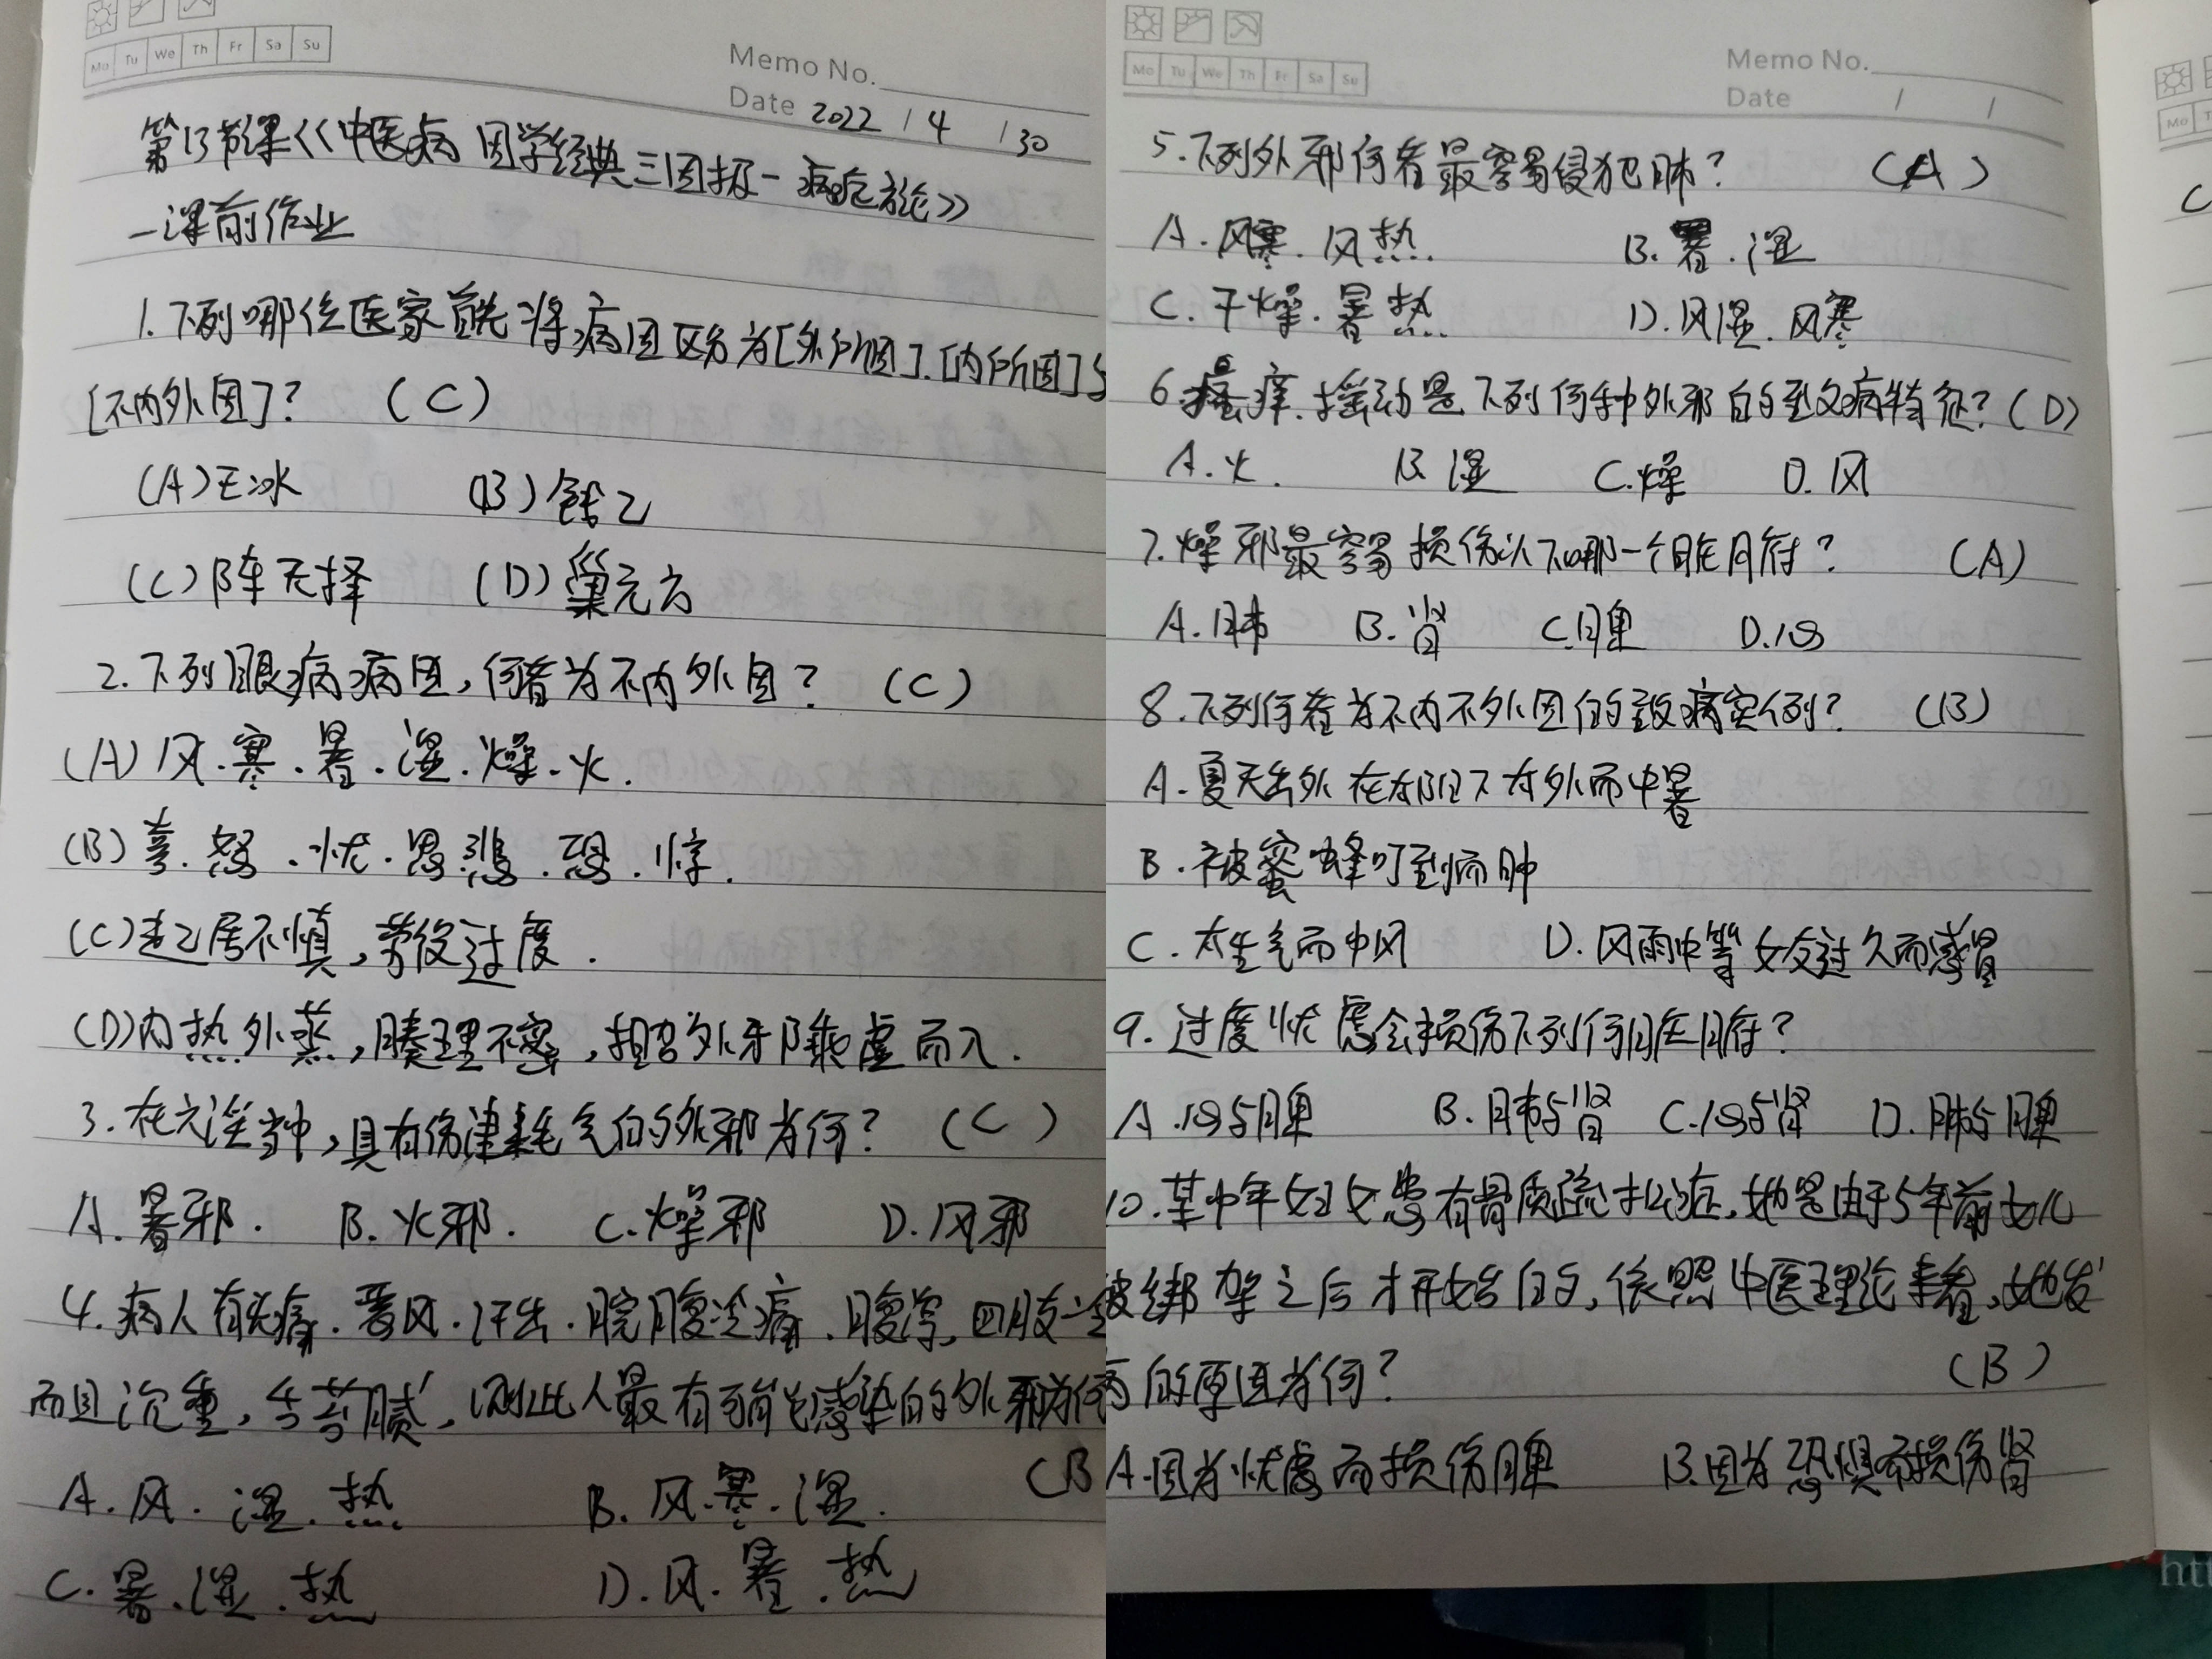 Mo Tu We Th Fr Sa Su
Memo No.
Date 2022 / 4 / 30
第13节课《中医病因学经典三因极一病症方论》
一课前作业
1.下列哪位医家首先将病因区分为[外所因].[内所因]与
[不内外因]? (C)
(A)王冰 (B)钱乙
(C)陈无择 (D)巢元方
2.下列眼病病因,何者为不内外因? (C)
(A)风.寒.暑.湿.燥.火.
(B)喜.怒.忧.思.悲.恐.惊.
(C)起居不慎,劳役过度.
(D)内热外蒸,腠理不密,招为外邪乘虚而入.
3.在六淫当中,具有伤津耗气的外邪为何? (C)
A.暑邪. B.火邪. C.燥邪 D.风邪
4.病人有头痛.恶风.汗出.脘腹冷痛.腹泻,四肢
而且沉重,舌苔腻,则此人最有可能感染的外邪为何
(B
A.风.湿.热 B.风.寒.湿.
C.暑.湿.热 D.风.暑.热
Mo Tu We Th Fr Sa Su
Memo No.
Date / /
5.下列外邪何者最容易侵犯肺? (A)
A.风寒.风热. B.暑.湿
C.干燥.暑热. D.风湿.风寒
6.瘙痒.摇动是下列何种外邪的致病特征?(D)
A.火. B.湿 C.燥 D.风
7.燥邪最容易损伤以下哪一个脏腑? (A)
A.肺 B.肾 C.脾 D.心
8.下列何者为不内不外因的致病实例? (B)
A.夏天出外在太阳下在外而中暑
B.被蜜蜂叮到而肿
C.太生气而中风 D.风雨中等女友过久而感冒
9.过度忧虑会损伤下列何脏腑?
A.心与脾 B.肺与肾 C.心与肾 D.肺与脾
10.某中年妇女患有骨质疏松症,她是由于5年前女儿
被绑架之后才开始的,依照中医理论来看,她发
病的原因为何? (B)
A.因为忧虑而损伤脾 B.因为恐惧而损伤肾